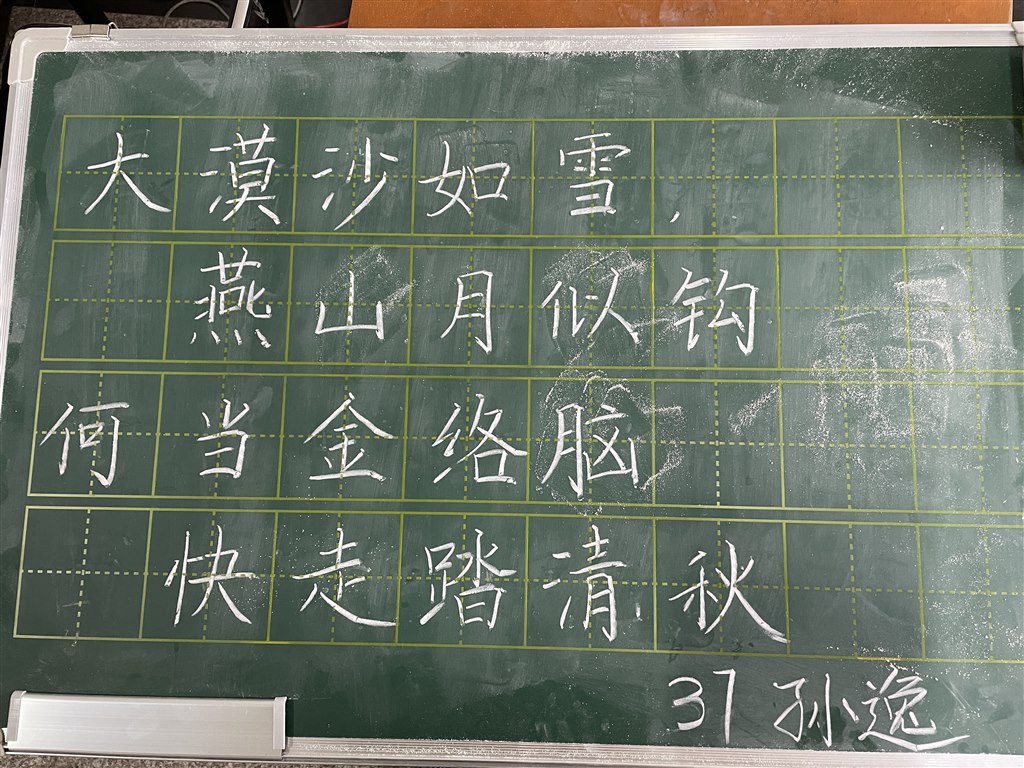 大漠沙如雪，
燕山月似钩
何当金络脑
快走踏清秋
37 孙逸